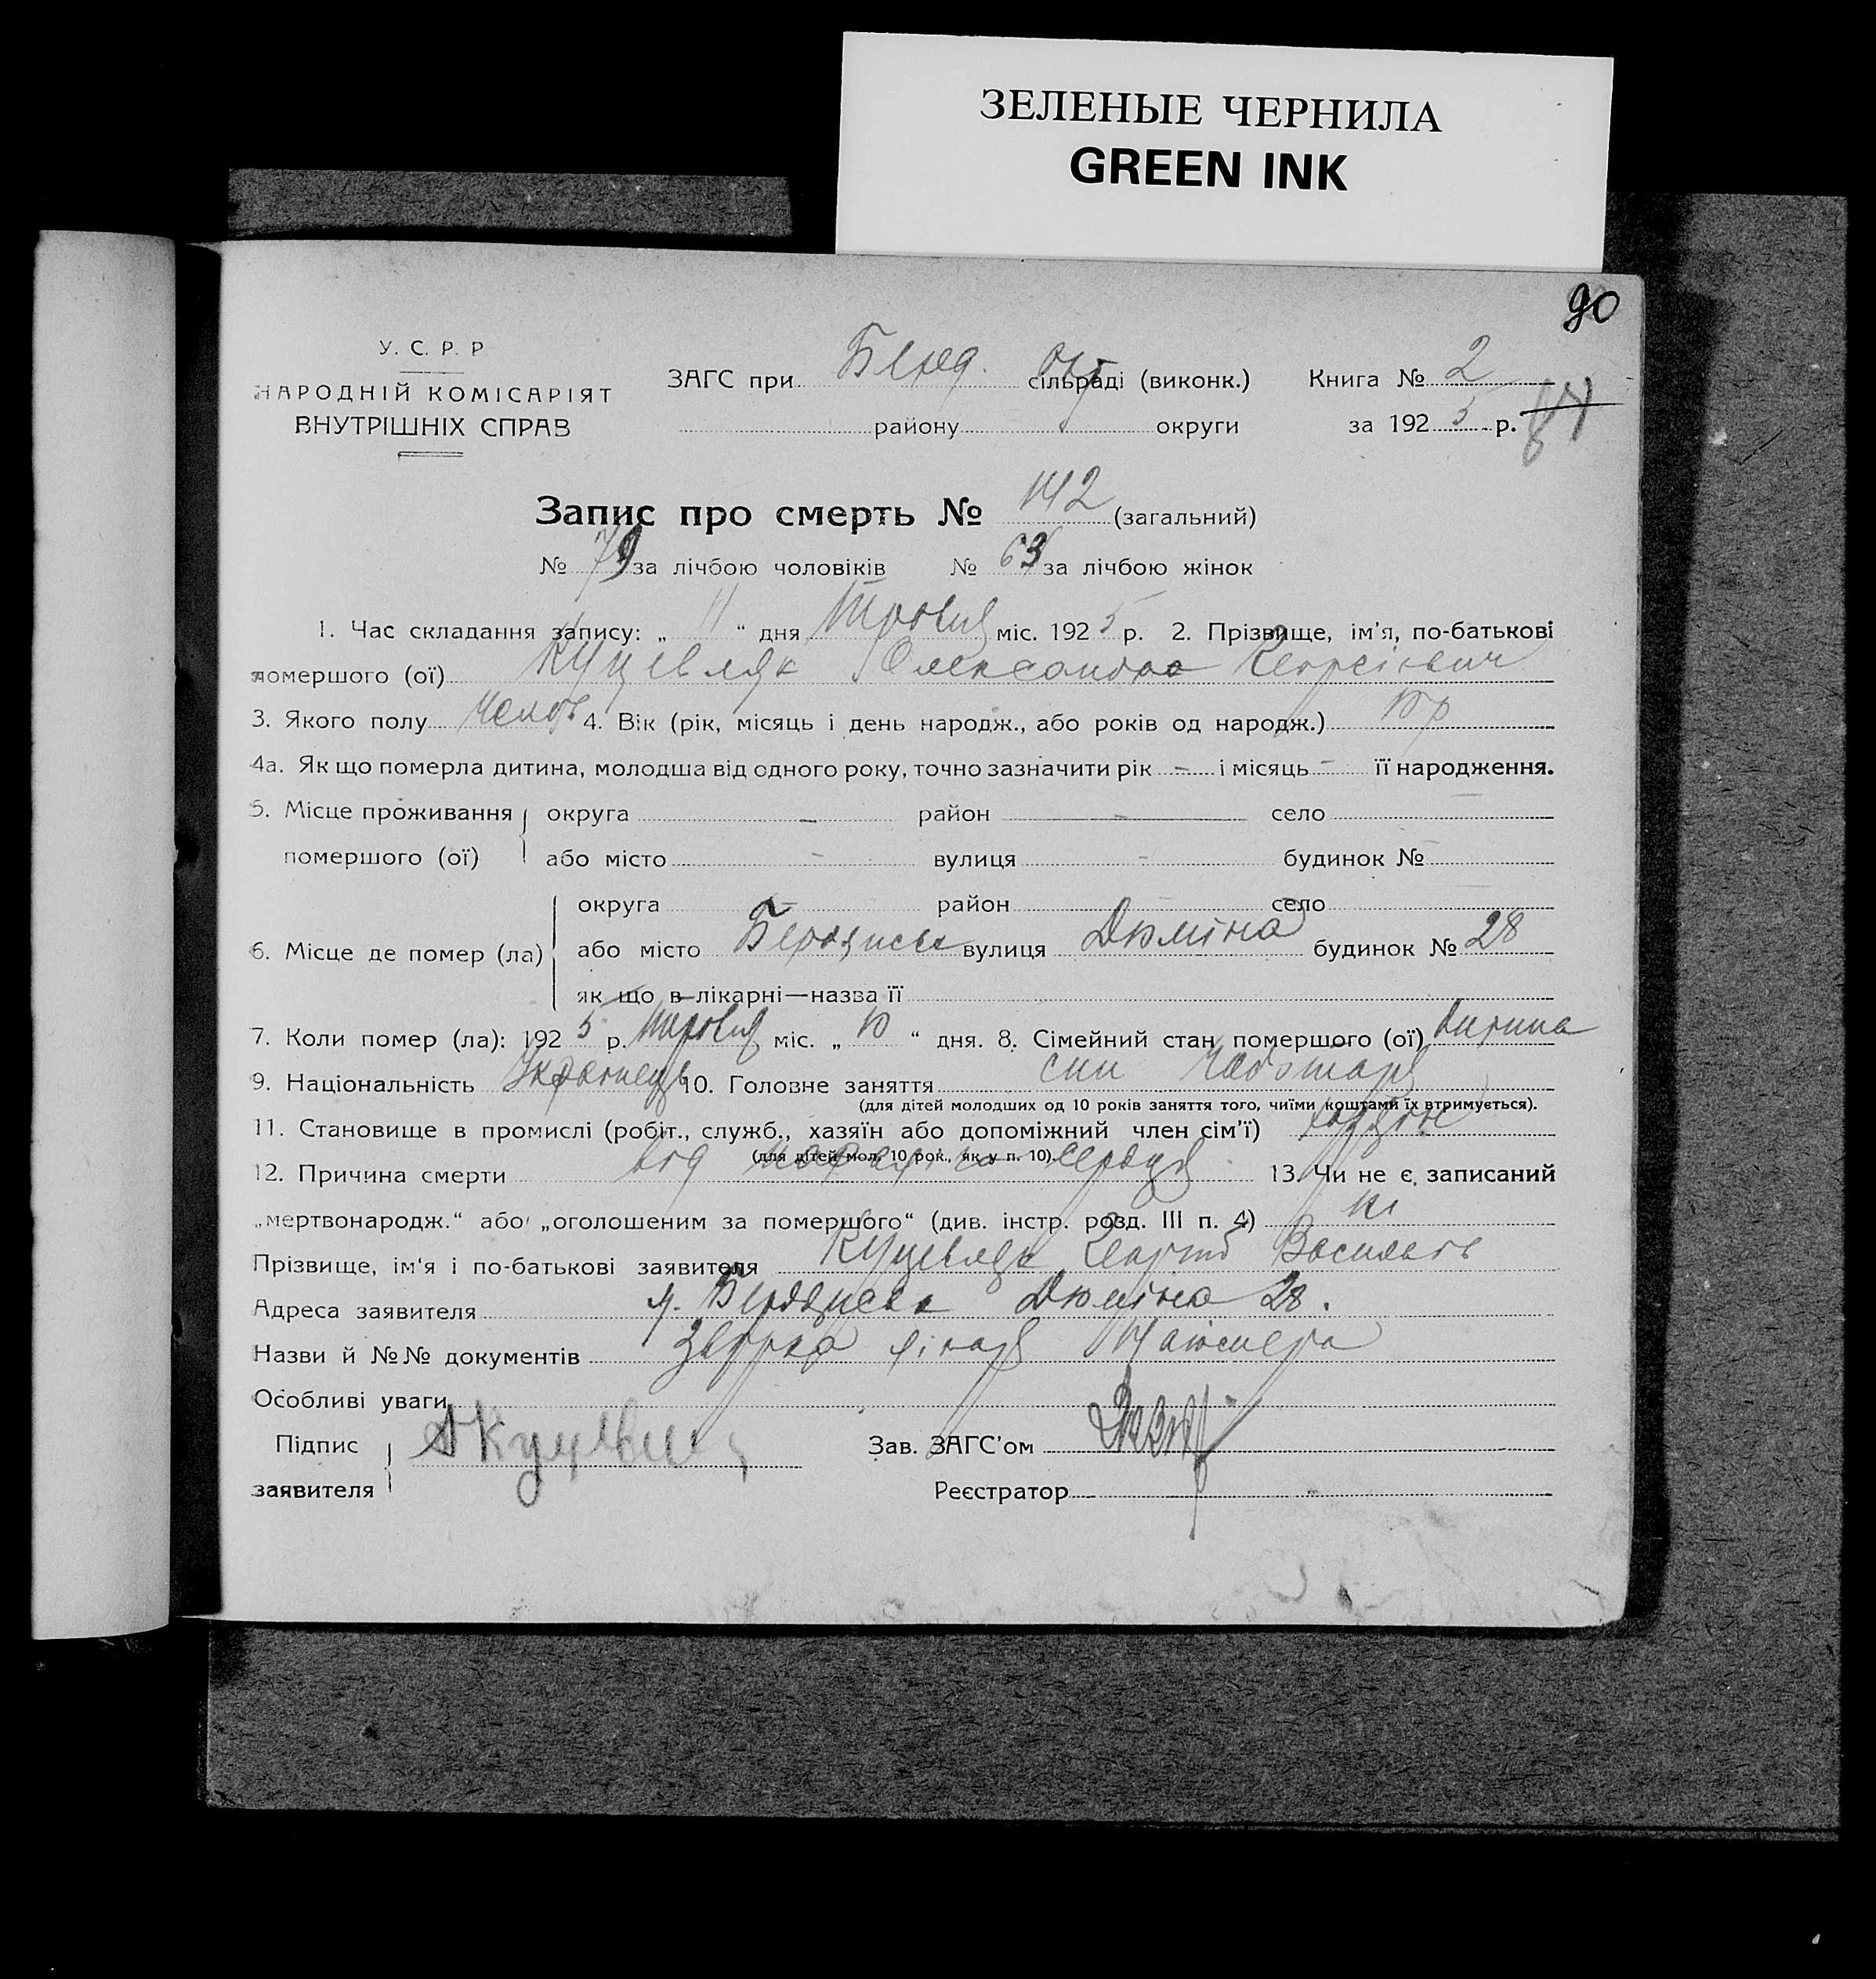 ЗЕЛЕНЫЕ ЧЕРНИЛА
GREEN INK
90
У. С. Р. Р
НАРОДНІЙ КОМІСАРІЯТ
ВНУТРІШНІХ СПРАВ
ЗАГС при Берд. Окр сільраді (виконк.) Книга № 2
району округи за 1925 р.
Запис про смерть № 142 (загальний)
№ 79 за лічбою чоловіків № 63 за лічбою жінок
1. Час складання запису: „ 11 “ дня Травня міс. 1925 р. 2. Прізвище, ім'я, по-батькові
помершого (ої) Куцевляк Олександр Георгієвич
3. Якого полу Чолов 4. Вік (рік, місяць і день народж., або років од народж.) 10 р
4а. Як що померла дитина, молодша від одного року, точно зазначити рік - і місяць - її народження.
5. Місце проживання округа - район - село
помершого (ої) або місто - вулиця - будинок №
округа район село
6. Місце де помер (ла) або місто Бердичев вулиця Дюміна будинок № 28
як що в лікарні—назва її
7. Коли помер (ла): 1925 р. Травня міс. „ 10 “ дня. 8. Сімейний стан помершого (ої) дитина
9. Національність Українець 10. Головне заняття син Чоботаря
(для дітей молодших од 10 років заняття того, чиїми коштами їх втримується).
11. Становище в промислі (робіт., служб., хазяїн або допоміжний член сім'ї) хазяїн
(для дітей мол. 10 рок., як у п. 10).
12. Причина смерти від серця 13. Чи не є записаний
„мертвонародж.“ або „оголошеним за помершого“ (див. інстр. розд. III п. 4) ні
Прізвище, ім'я і по-батькові заявителя Куцевляк Георгій Василев
Адреса заявителя м. Бердичев Дюміна 28.
Назви й №№ документів лікаря
Особливі уваги
Підпис Зав. ЗАГС'ом
заявителя Реєстратор